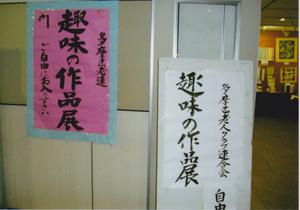 多摩市老連
趣味の作品展
ご自由にお入り下さい
多摩市老人クラブ連合会
趣味の作品展
自由